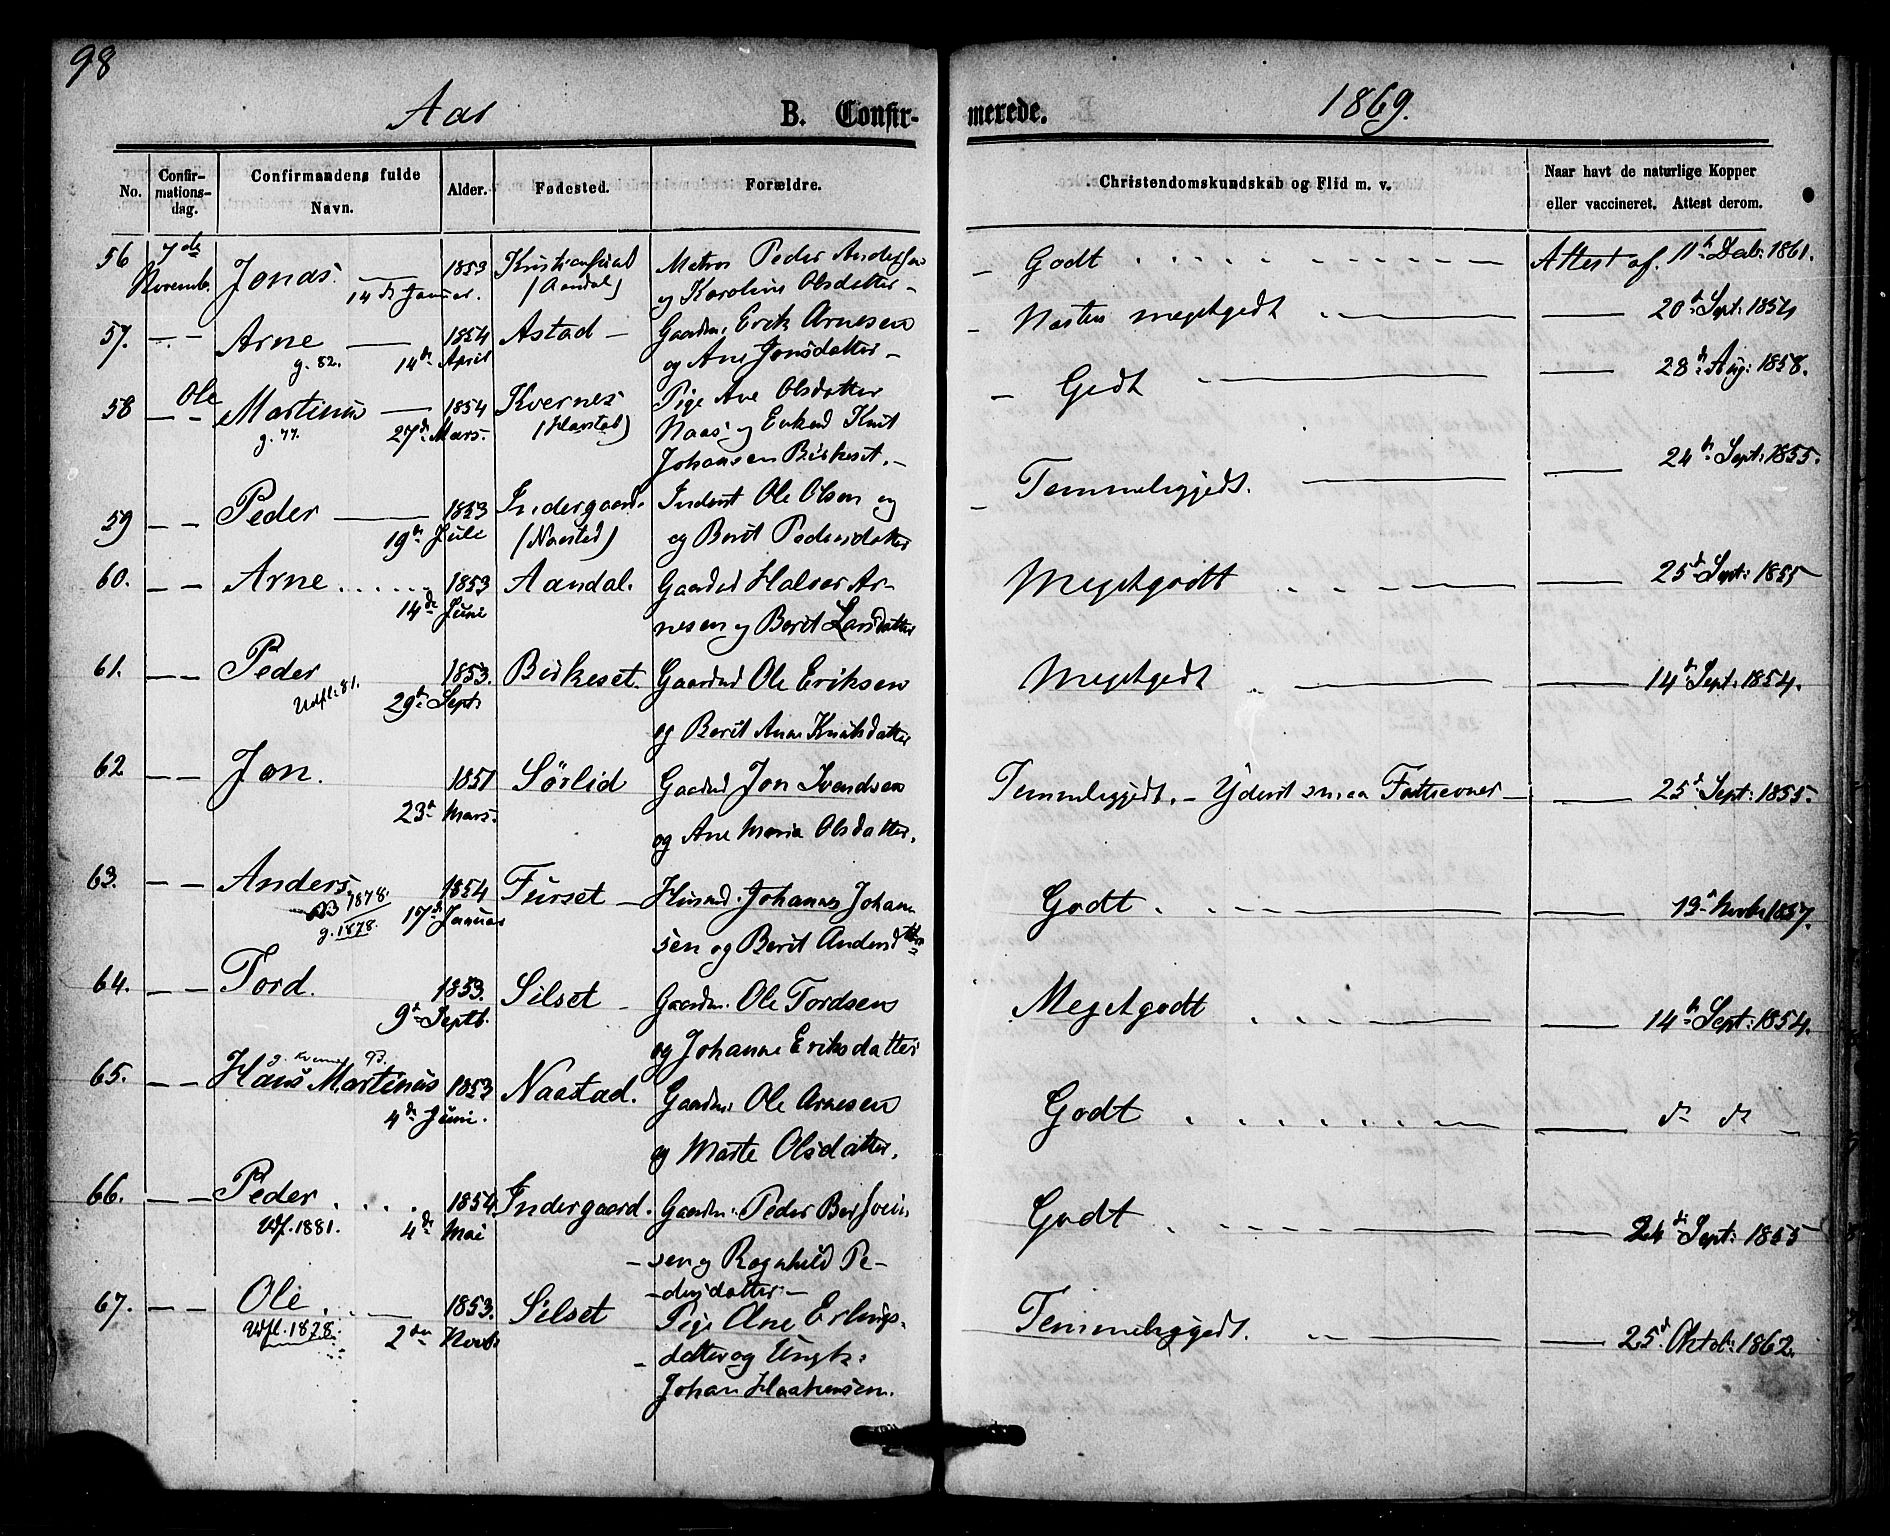 98
Aar B. Confir- merede. 1869.
No. Confir-mations-dag. Confirmandens fulde Navn. Alder. Fødested. Forældre. Christendomskundskab og Flid m. v. Naar havt de naturlige Kopper eller vaccineret. Attest derom.
56 7de Jonas. — 1853 Peder Andersen — Godt Attest af. 11te Deb: 1861.
Novemb. 14de Januar. (Aandal) og Karoline Olsdatter —
57. — — Arne — 1854 Astad — Gaardm: Erik Arnesen — megetgodt — 20de Sept: 1854
g. 82. 14de April og Ane Jonsdatter —
58 — — Ole Martinus — 1854 Kvernes Pige Ane Olsdatter — Godt — 28de Aug: 1858.
g. 77. 27de Mars. Naas og Enkemd Knut
Johansen Birkeset. —
59 — — Peder — 1853 Indergaard. Inderst Ole Olsen og — Temmeliggodt. — 24de Sept: 1855.
19de Juli (Naastad) og Berit Pedersdatter
60. — — Arne 1853 Aandal. Gaardmd Halvor Ar- Megetgodt — 25de Sept: 1855
14de Juni nesen og Berit Larsdatter
61. — — Peder 1853. Birkeset. Gaardmd Ole Eriksen Megetgodt — 14de Sept: 1854.
Udfl. 81. 29de Sept: og Berit Anne Knutsdatter
62 — — Jon. 1851 Sørlid Gaardmd Jon Ivendsen Temmeliggodt. — Yderst smaa Fatteevner — 25de Sept: 1855.
23de Mars. og Ane Maria Olsdatter.
63. — — Anders. 1854 Furset — Husmd. Johannes Johan Godt — 13de Novbr 1857.
1878. 17de Januar
g. 1878. sen og Berit Andersdtter
64. — — Tord. 1853. Silset — Gaardm. Ole Tordsen Megetgodt — 14de Sept: 1854.
9de Septb. og Johanne Eriksdatter
g. Kvernes 93.
65. — — Hans Martinus 1853 Naastad. Gaardm: Ole Arnesen Godt — do do —
4de Juni. og Marte Olsdatter.
66. — — Peder 1854. Indergaard. Gaardm: Peder Godt — 24de Sept: 1855
Udf. 1881. 4de Mai — sen og Ragnhild Pe-
— dersdatter —
67. — — Ole — 1853. Silset Pige Ane Erlings- Temmeliggodt. — 25de Oktob: 1862.
Udfl. 1878. 2den Novb: — datter og Ungk:
Johan Haakensen.